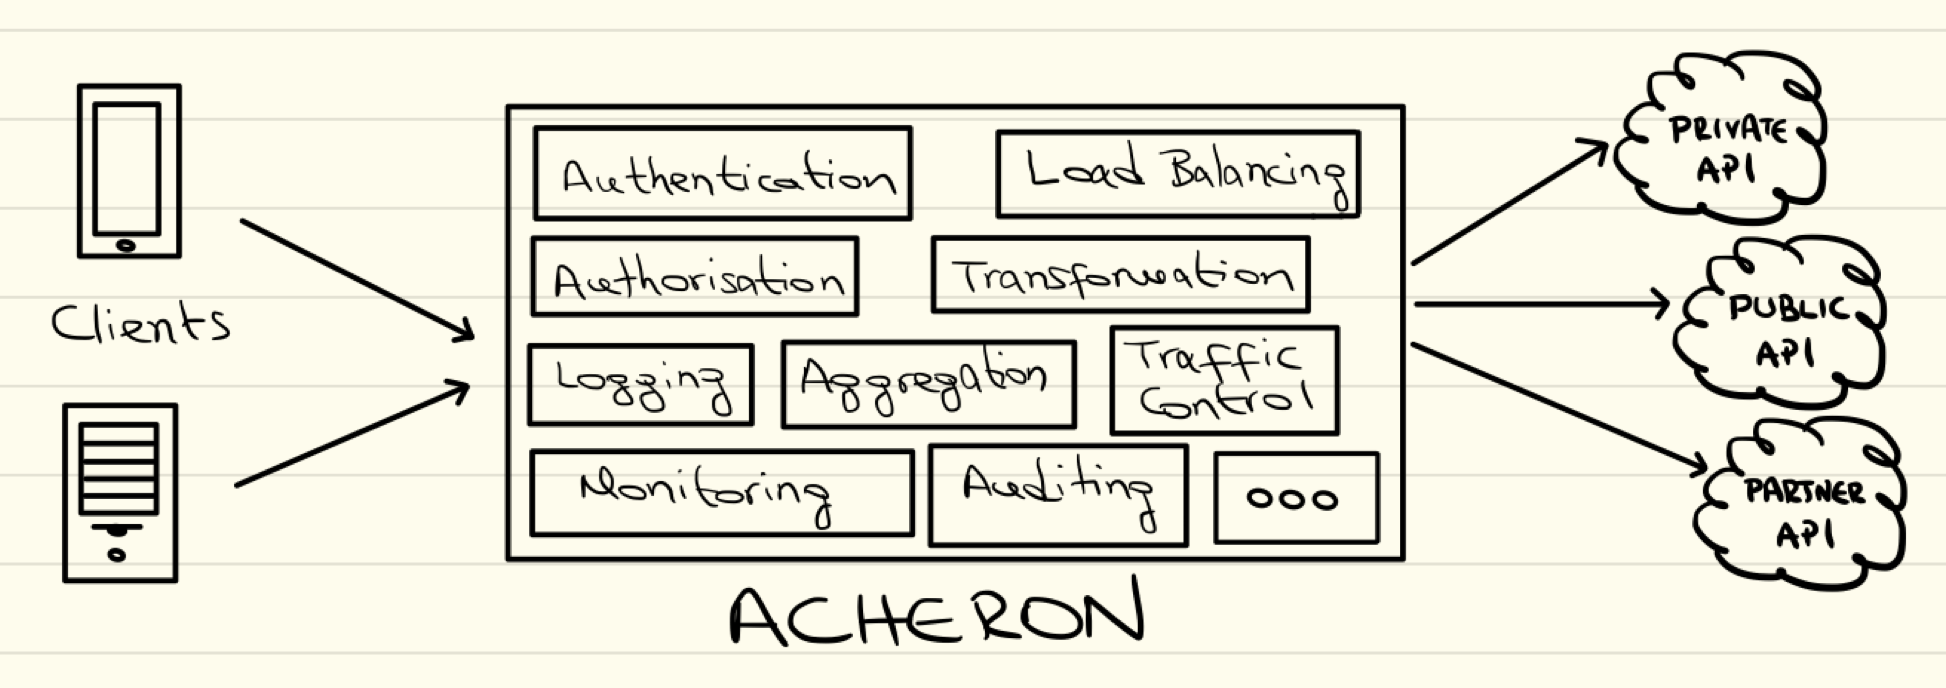 Clients
Authentication
Load Balancing
Authorisation
Transformation
Logging
Aggregation
Traffic
Control
Monitoring
Auditing
ooo
ACHERON
PRIVATE
API
PUBLIC
API
PARTNER
API